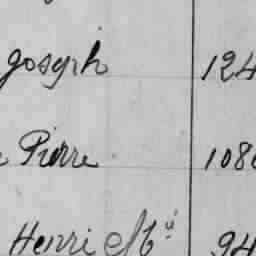 Joseph 124
Pierre 108
Henri Mce 94